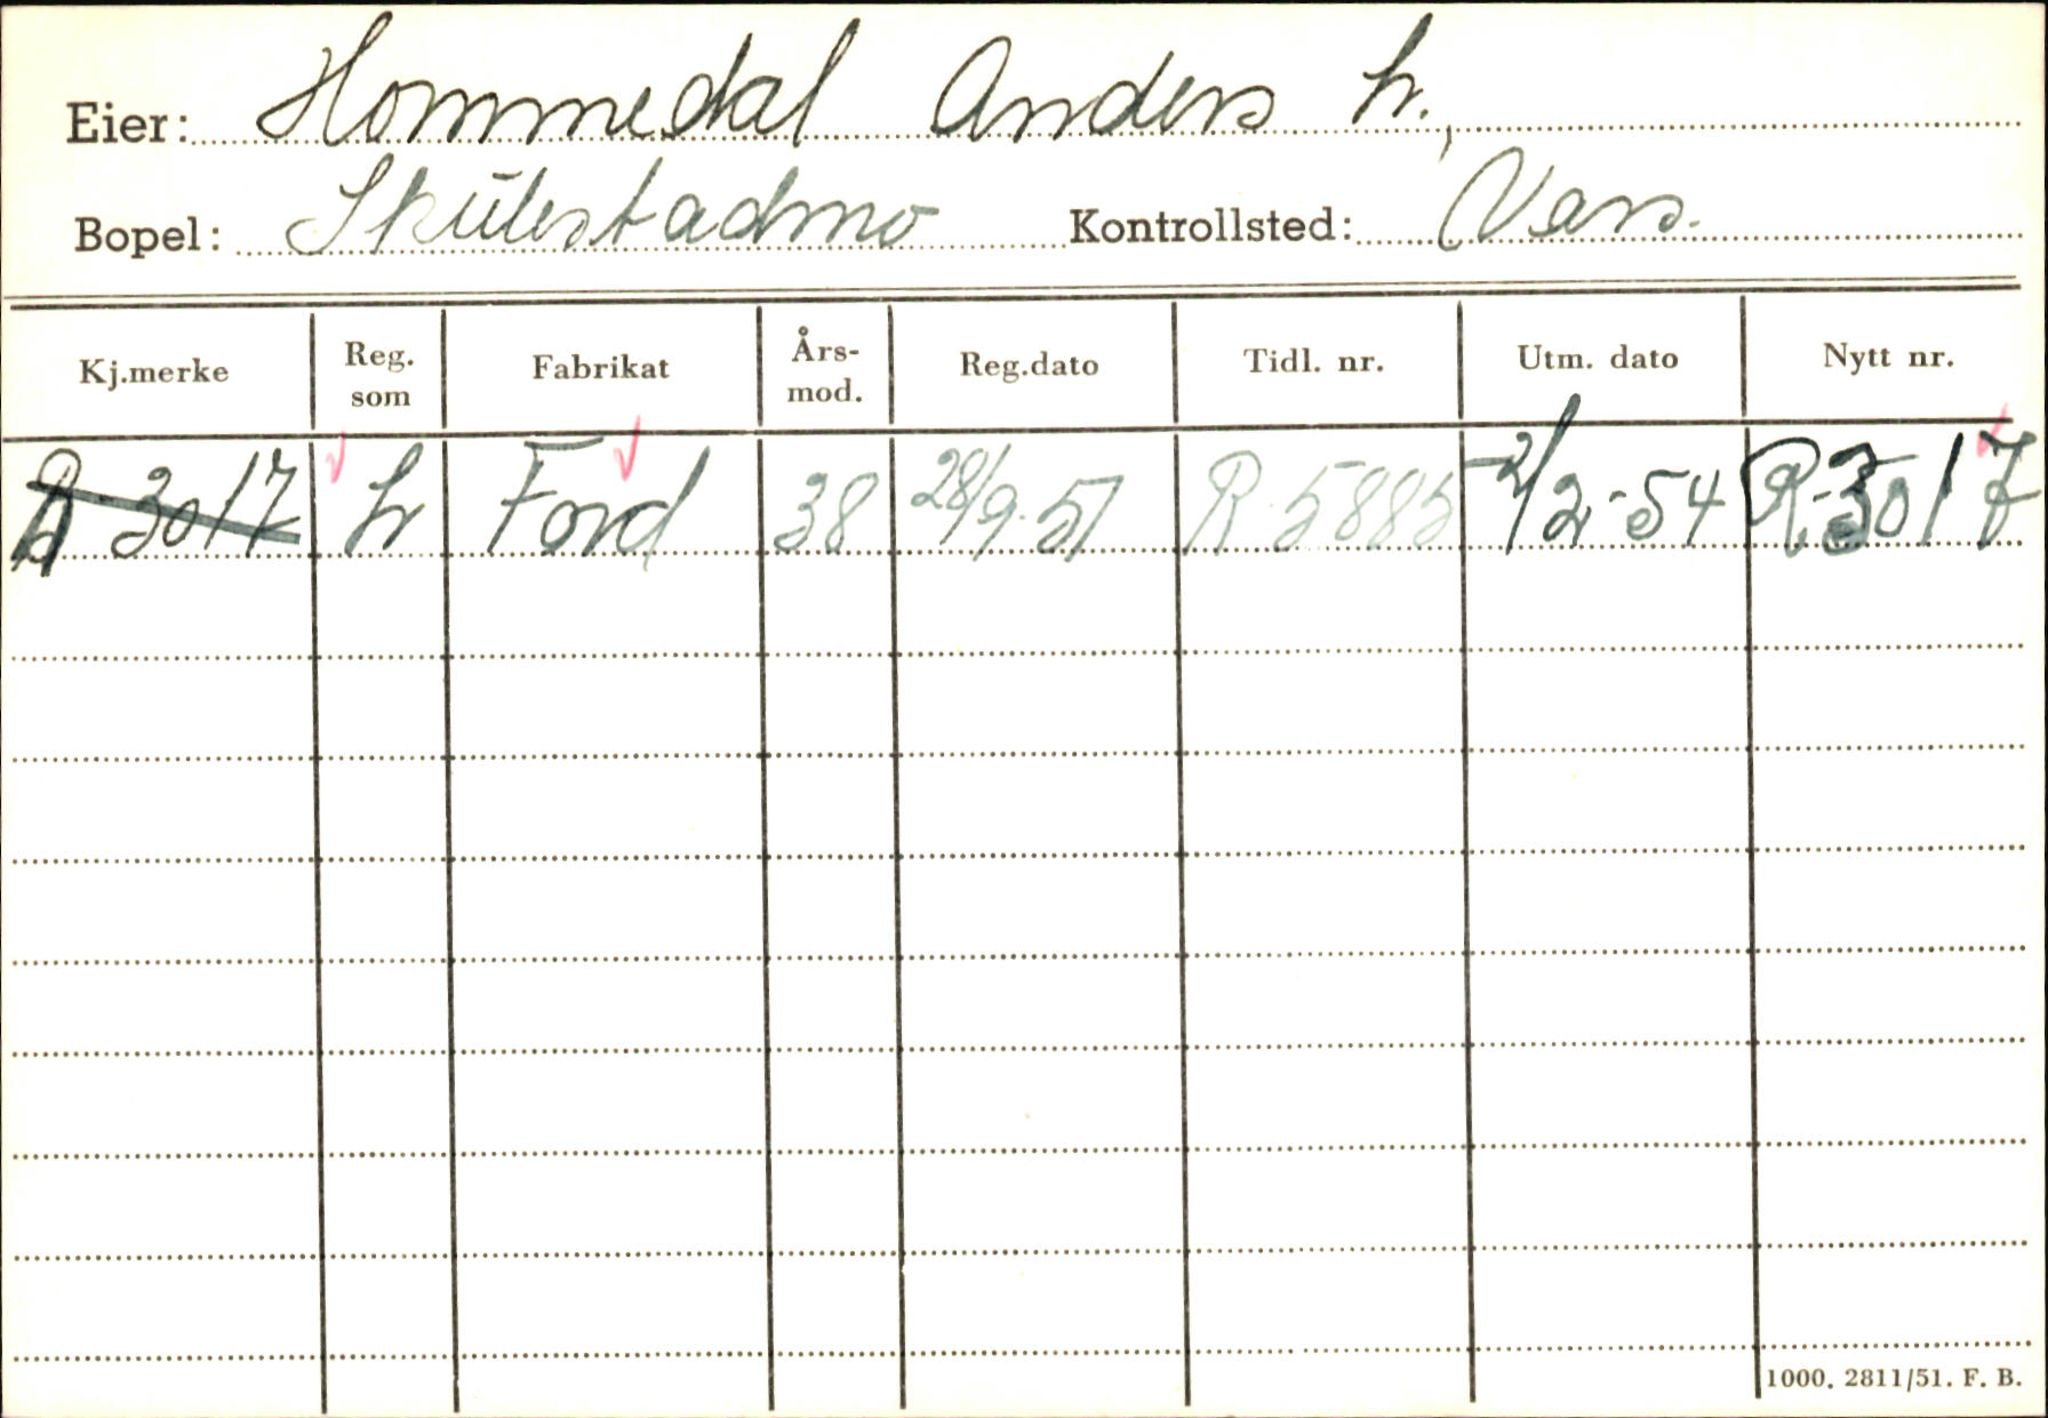 Eier: Hommedal Anders L.,
Bopel: Skulestadmo Kontrollsted: Voss.
Kj.merke Reg. som Fabrikat Års- mod. Reg.dato Tidl. nr. Utm. dato Nytt nr.
R 3017 L Ford 38 28/9-51 R-5885 2/2-54 R-3017
1000. 2811/51. F. B.